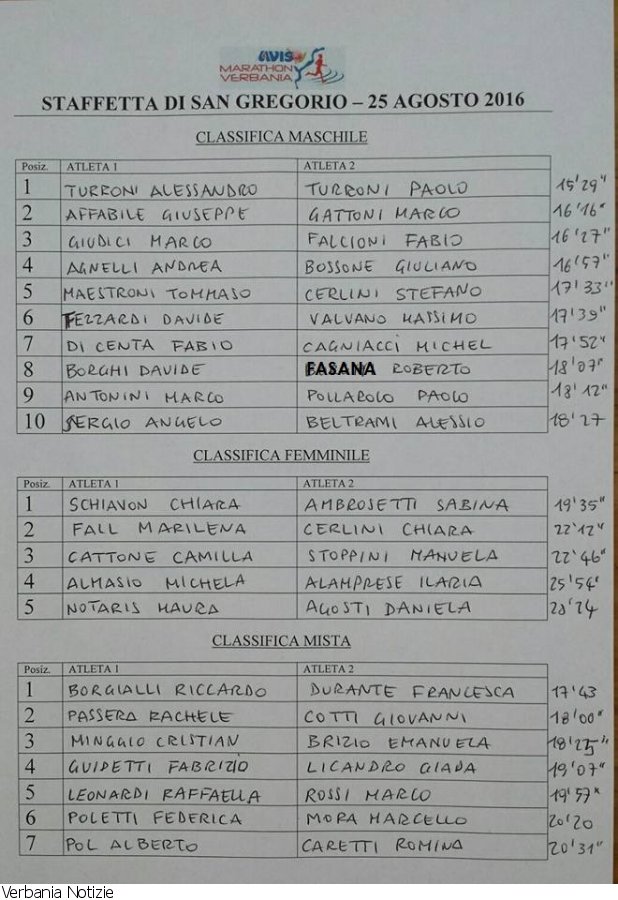 AVIS
MARATHON
VERBANIA
STAFFETTA DI SAN GREGORIO – 25 AGOSTO 2016
CLASSIFICA MASCHILE
Posiz. ATLETA 1 ATLETA 2
1 TURRONI ALESSANDRO TURRONI PAOLO 15'29"
2 AFFABILE GIUSEPPE GATTONI MARCO 16'16"
3 GIUDICI MARCO FALCIONI FABIO 16'27"
4 AGNELLI ANDREA BOSSONE GIULIANO 16'57"
5 MAESTRONI TOMMASO CERLINI STEFANO 17'33"
6 FEZZARDI DAVIDE VALVANO MASSIMO 17'39"
7 DI CENTA FABIO CAGNIACCI MICHEL 17'52"
8 BORGHI DAVIDE FASANA ROBERTO 18'07"
9 ANTONINI MARCO POLLAROLO PAOLO 18'12"
10 SERGIO ANGELO BELTRAMI ALESSIO 18'27
CLASSIFICA FEMMINILE
Posiz. ATLETA 1 ATLETA 2
1 SCHIAVON CHIARA AMBROSETTI SABINA 19'35"
2 FALL MARILENA CERLINI CHIARA 22'12"
3 CATTONE CAMILLA STOPPINI MANUELA 22'46"
4 ALMASIO MICHELA ALAMPRESE ILARIA 25'54"
5 NOTARIS MAURA AGOSTI DANIELA 28'24
CLASSIFICA MISTA
Posiz. ATLETA 1 ATLETA 2
1 BORGIALLI RICCARDO DURANTE FRANCESCA 17'43
2 PASSERA RACHELE COTTI GIOVANNI 18'00"
3 MINGGIO CRISTIAN BRIZIO EMANUELA 18'25"
4 GUIDETTI FABRIZIO LICANDRO GIADA 19'07"
5 LEONARDI RAFFAELLA ROSSI MARCO 19'57"
6 POLETTI FEDERICA MORA MARCELLO 20'20
7 POL ALBERTO CARETTI ROMINA 20'31"
Verbania Notizie